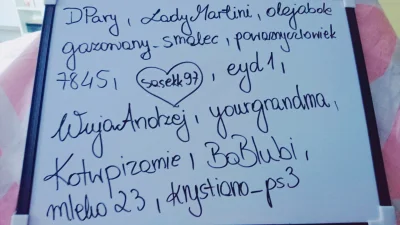 DPary, LadyMartini, olejabde
gazowany-smalec, powaznyczlowiek
7845, sosekk97, eyd1,
WujaAndrzej, yourgrandma,
Kotwpizamie, BoBlubi,
mleko23, krystiano_ps3